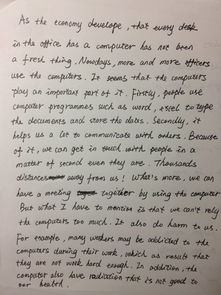 As the economy develope, that every desk
in the office has a computer has not been
a fresh thing. Nowdays, more and more officers
use the computers. It seems that the computers
play an important part of it. Firstly, people use
computer programmes such as word, excel to type
the documents and store the dates. Secondly, it
helps us a lot to communicate with others. Because
of it, we can get in touch with people in a
matter of second even they are. Thousands
distance away from us! What's more, we can
have a meeting together by using the computer
But what I have to mention is that we can't rely
the computers too much. It also do harm to us.
For example, many workers may be addicted to the
computers during their work, which as results that
they are not work hard enough. In addition, the
computer also have radiation that is not good to
our health.